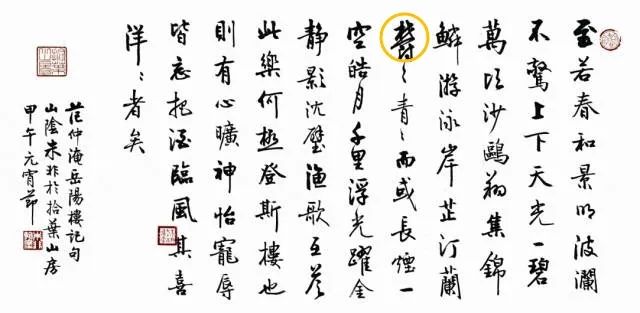 至若春和景明波瀾
不驚上下天光一碧
萬頃沙鷗翔集錦
鱗游泳岸芷汀蘭
鬱〻青〻而或長煙一
空皓月千里浮光躍金
静影沈璧漁歌互答
此樂何極登斯樓也
則有心曠神怡寵辱
皆忘把酒臨風其喜
洋〻者矣
范仲淹岳陽樓記句
山陰朱非於拾葉山房
甲午元宵節